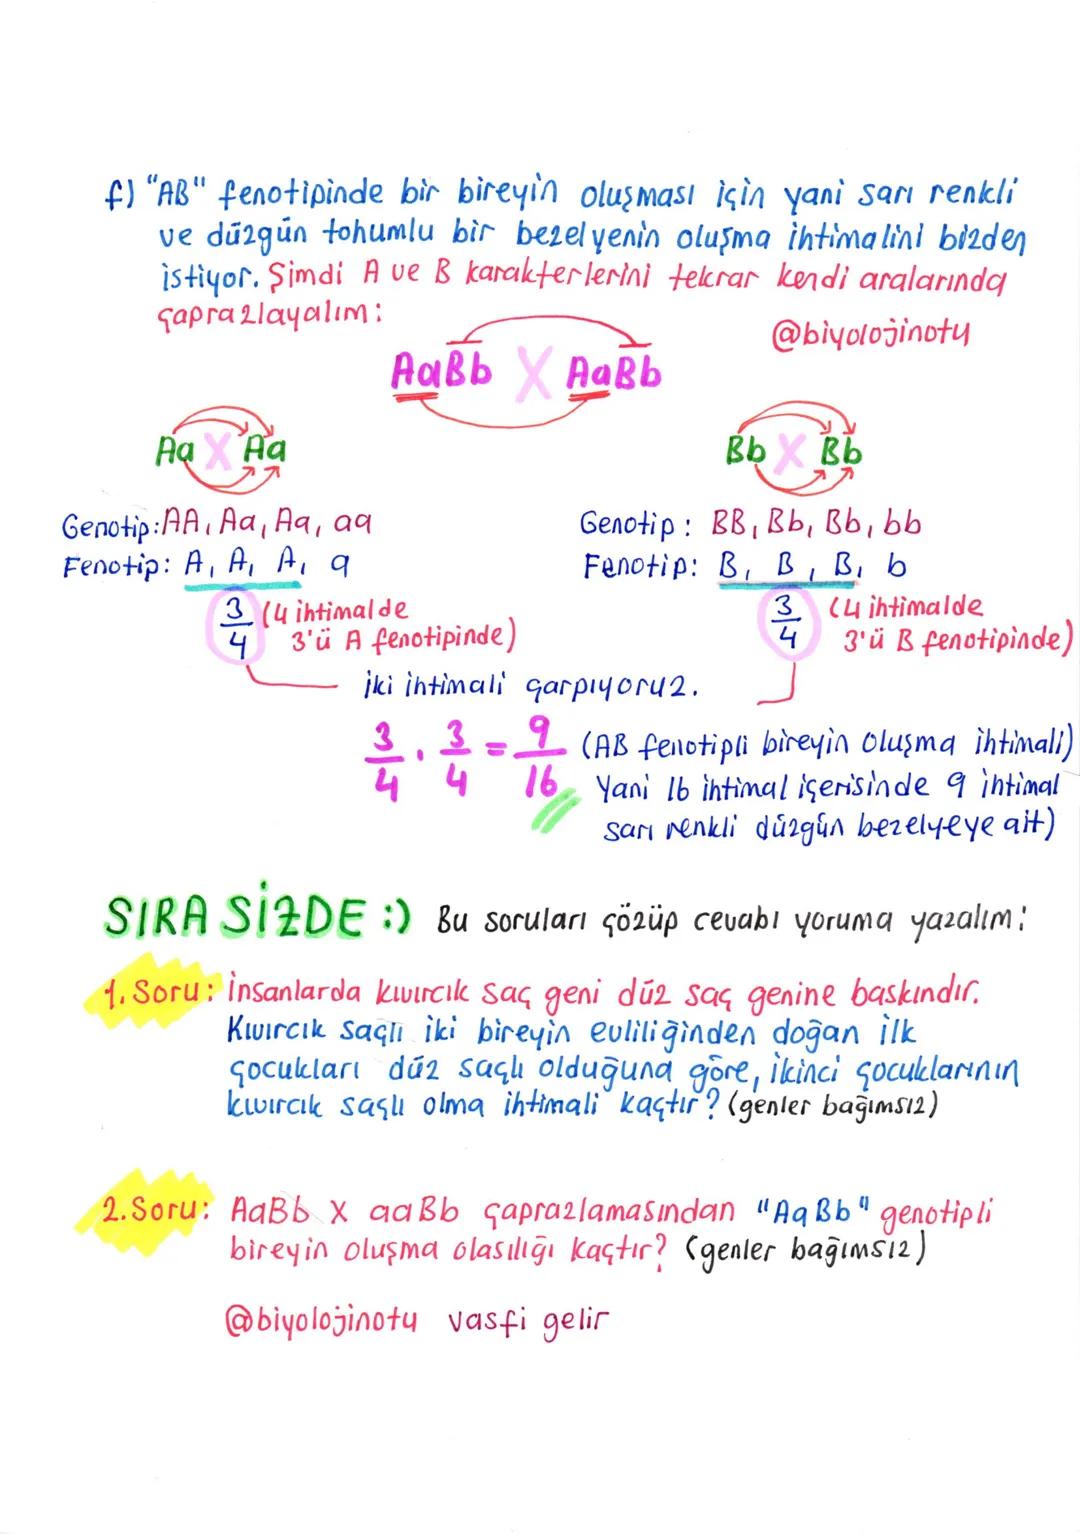 f) "AB" fenotipinde bir bireyin oluşması için yani sarı renkli
ve düzgün tohumlu bir bezelyenin oluşma ihtimalini bizden
istiyor. Şimdi A ve B karakterlerini tekrar kendi aralarında
çaprazlayalım:
@biyolojinotu
AaBb X AaBb
Aa X Aa
Bb X Bb
Genotip: AA, Aa, Aa, aa
Fenotip: A, A, A, a
3/4 (4 ihtimalde
3'ü A fenotipinde)
Genotip: BB, Bb, Bb, bb
Fenotip: B, B, B, b
3/4 (4 ihtimalde
3'ü B fenotipinde)
iki ihtimali çarpıyoruz.
3/4 . 3/4 = 9/16 (AB fenotipli bireyin oluşma ihtimali)
Yani 16 ihtimal içerisinde 9 ihtimal
sarı renkli düzgün bezelyeye ait)
SIRA SİZDE :) Bu soruları çözüp cevabı yoruma yazalım:
1. Soru: İnsanlarda kıvırcık saç geni düz saç genine baskındır.
Kıvırcık saçlı iki bireyin evliliğinden doğan ilk
çocukları düz saçlı olduğuna göre, ikinci çocuklarının
kıvırcık saçlı olma ihtimali kaçtır? (genler bağımsız)
2. Soru: AaBb X aaBb çaprazlamasından "AaBb" genotipli
bireyin oluşma olasılığı kaçtır? (genler bağımsız)
@biyolojinotu vasfi gelir